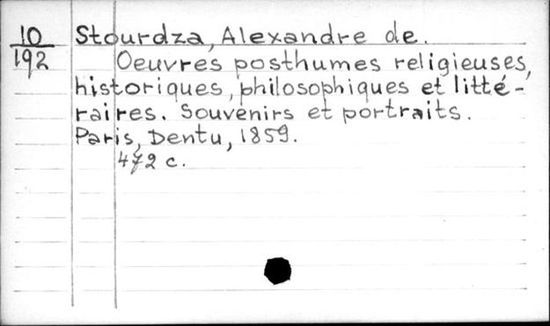 10
192
Stourdza, Alexandre de.
Oeuvres posthumes religieuses,
historiques, philosophiques et litté-
raires. Souvenirs et portraits.
Paris, Dentu, 1859.
472 c.